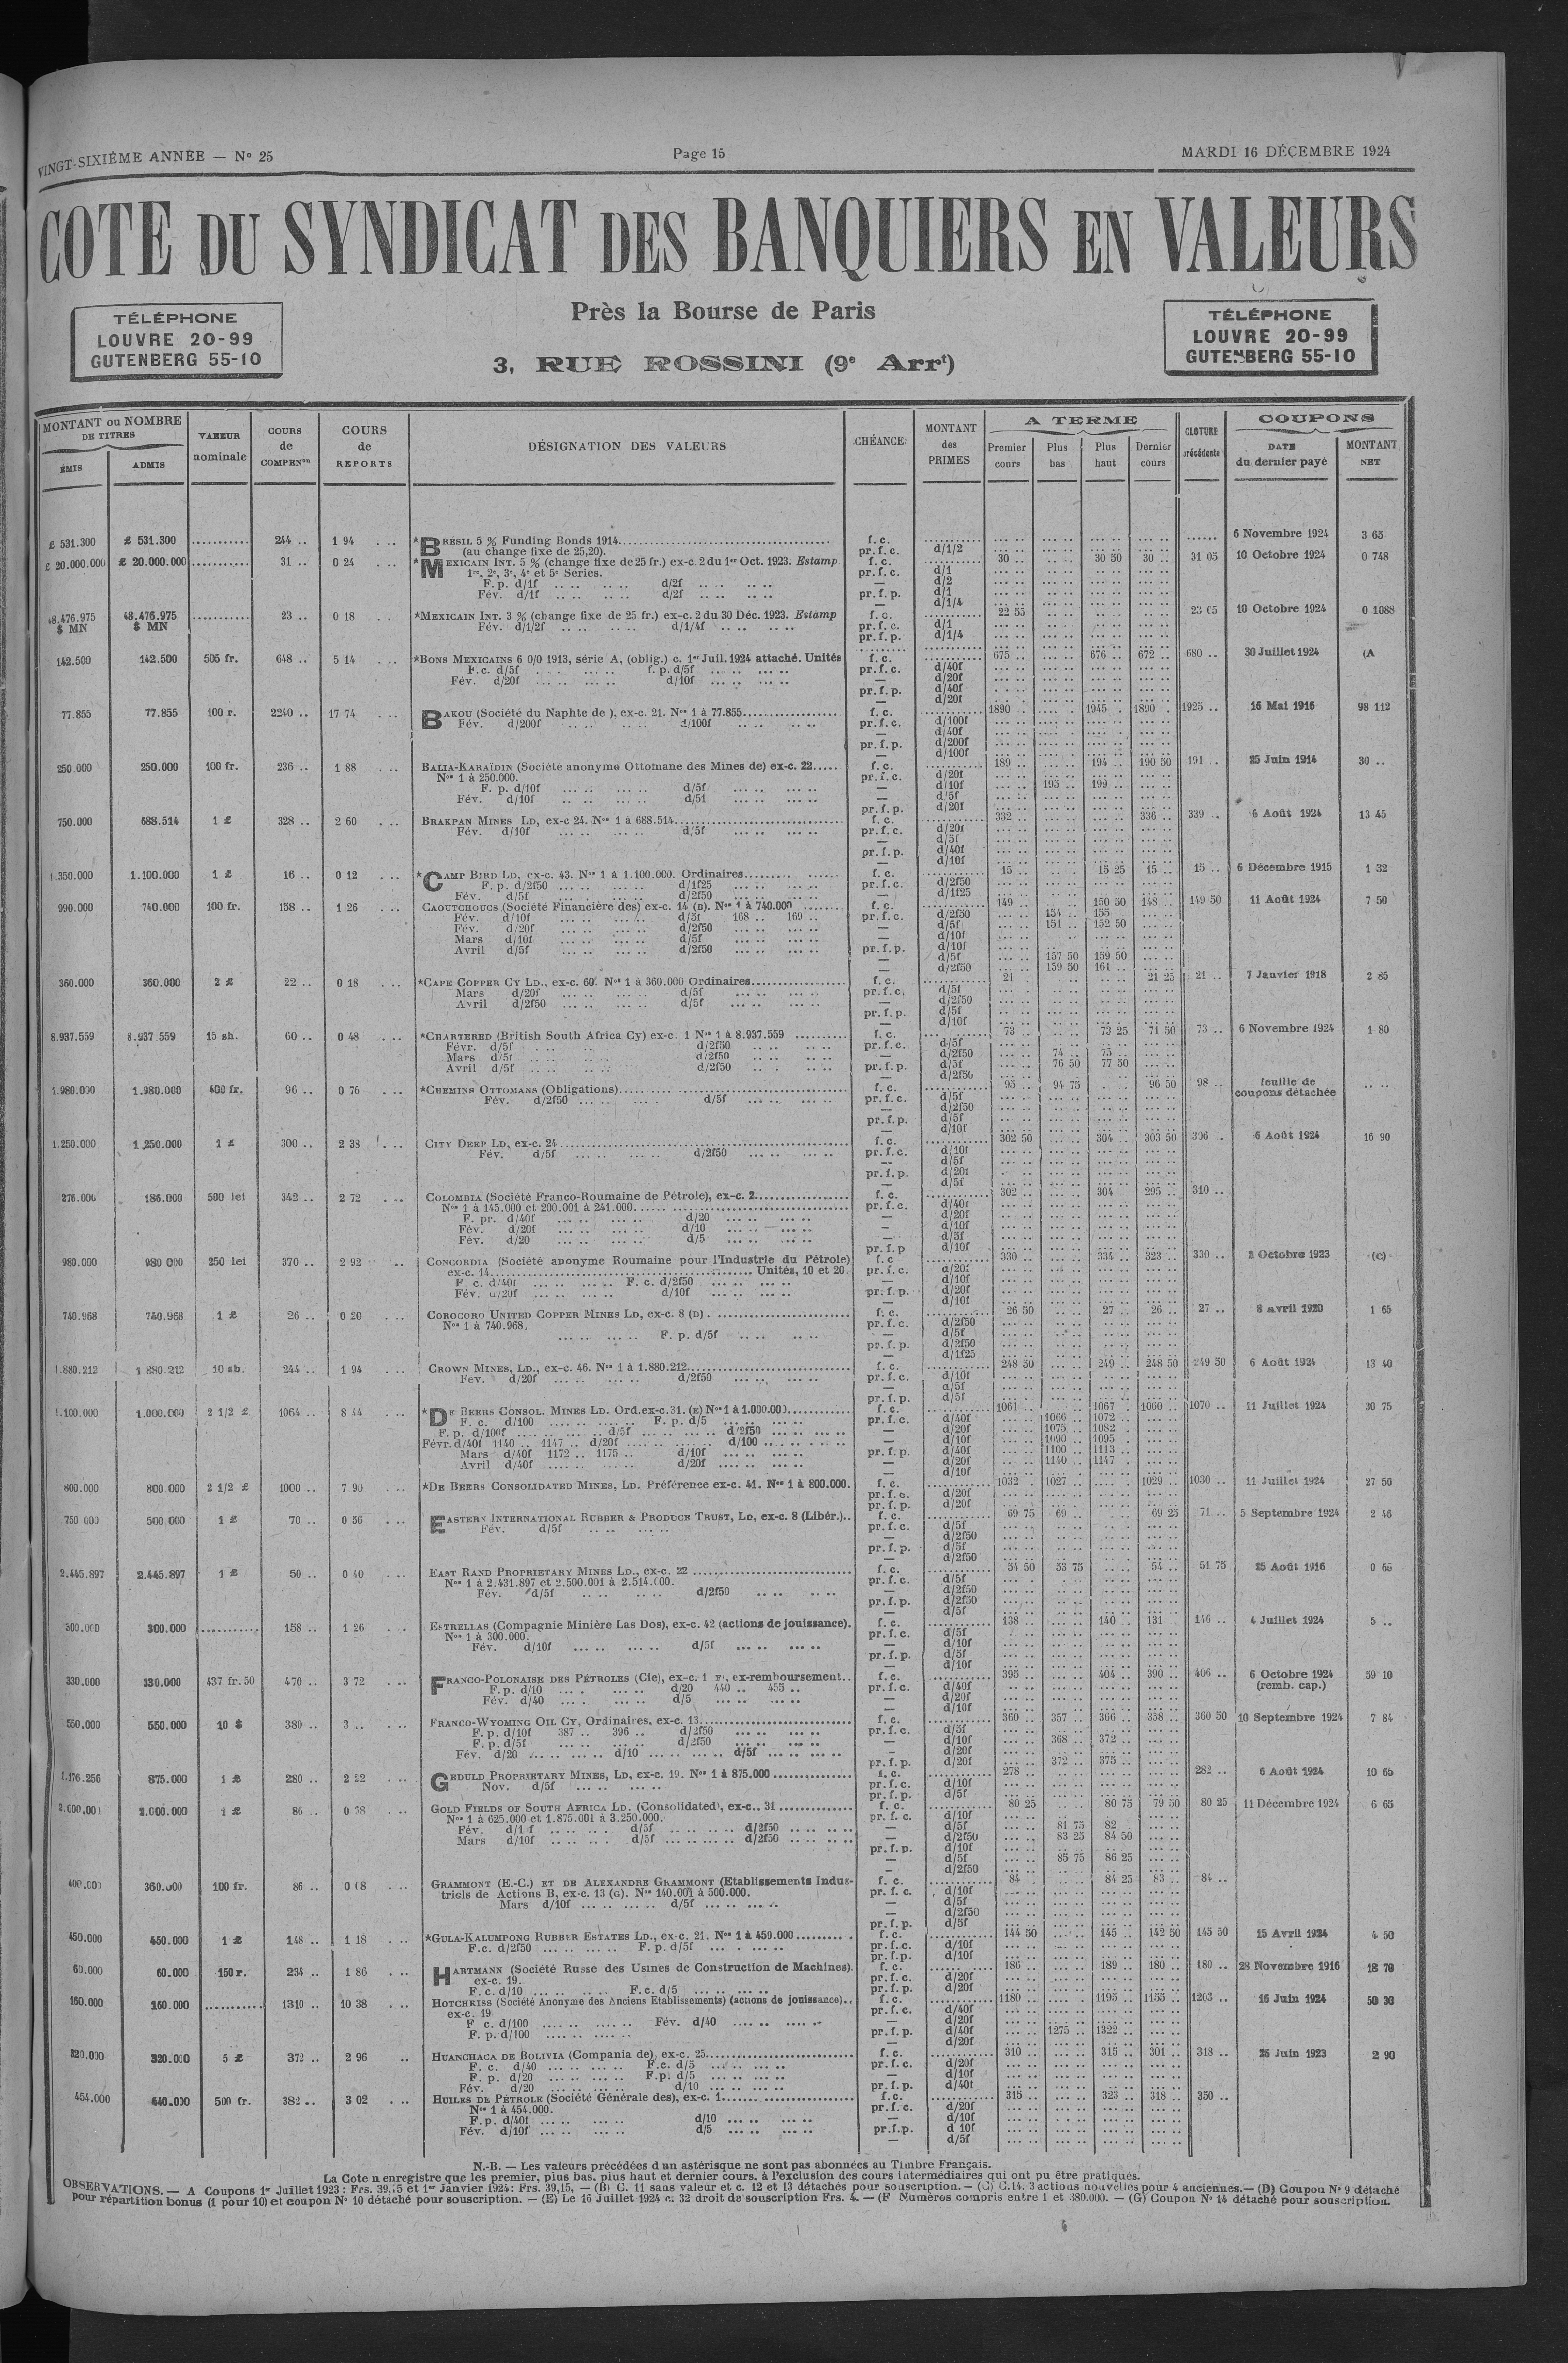 VINGT-SIXIÈME ANNÉE — N° 25
Page 15
MARDI 16 DÉCEMBRE 1924
COTE DU SYNDICAT DES BANQUIERS EN VALEURS
TÉLÉPHONE
LOUVRE 20-99
GUTENBERG 55-10
Près la Bourse de Paris
3, RUE ROSSINI (9e Arrt)
TÉLÉPHONE
LOUVRE 20-99
GUTENBERG 55-10
MONTANT ou NOMBRE DE TITRES
ÉMIS
ADMIS
VALEUR nominale
COURS de COMPENon
COURS de REPORTS
DÉSIGNATION DES VALEURS
CHÉANCE
MONTANT des PRIMES
A TERME
Premier cours
Plus bas
Plus haut
Dernier cours
CLOTURE précédente
COUPONS
DATE du dernier payé
MONTANT NET
£ 531.300 £ 531.300 244 .. 1 94 *BRÉSIL 5 % Funding Bonds 1914 f. c. 6 Novembre 1924 3 65
(au change fixe de 25,20). pr. f. c. d/1/2
£ 20.000.000 £ 20.000.000 31 .. 0 24 *MEXICAIN INT. 5 % (change fixe de 25 fr.) ex-c. 2 du 1er Oct. 1923. Estamp f. c. 30 .. 30 50 30 .. 31 05 10 Octobre 1924 0 748
1re, 2e, 3e, 4e et 5e Séries. pr. f. c. d/1
F. p. d/1f d/2f — d/2
Fév. d/1f d/2f pr. f. p. d/1
— d/1/4
48.476.975 $ MN 48.476.975 $ MN 23 .. 0 18 *MEXICAIN INT. 3 % (change fixe de 25 fr.) ex-c. 2 du 30 Déc. 1923. Estamp f. c. 22 55 23 05 10 Octobre 1924 0 1088
Fév. d/1/2f d/1/4f pr. f. c. d/1
pr. f. p. d/1/4
142.500 142.500 505 fr. 648 .. 5 14 *BONS MEXICAINS 6 0/0 1913, série A, (oblig.) c. 1er Juil. 1924 attaché. Unités f. c. 675 .. 676 .. 672 .. 680 .. 30 Juillet 1924 (A
F.c. d/5f f. p. d/5f pr. f. c. d/40f
Fév. d/20f d/10f — d/20f
pr. f. p. d/40f
— d/20f
77.855 77.855 100 r. 2240 .. 17 74 BAKOU (Société du Naphte de ), ex-c. 21. Nos 1 à 77.855 f. c. 1890 .. 1945 .. 1890 .. 1925 .. 16 Mai 1916 98 112
Fév. d/200f d/100f pr. f. c. d/100f
— d/40f
pr. f. p. d/200f
— d/100f
250.000 250.000 100 fr. 236 .. 1 88 BALIA-KARAÏDIN (Société anonyme Ottomane des Mines de) ex-c. 22 f. c. 189 .. 194 .. 190 50 191 .. 25 Juin 1914 30 ..
Nos 1 à 250.000. pr. f. c. d/20f
F. p. d/10f d/5f — d/10f 195 .. 199 ..
Fév. d/10f d/5f — d/5f
pr. f. p. d/20f
750.000 688.514 1 £ 328 .. 2 60 BRAKPAN MINES LD, ex-c 24. Nos 1 à 688.514 f. c. 332 .. 336 .. 339 .. 6 Août 1924 13 45
Fév. d/10f d/5f pr. f. c. d/20f
— d/5f
pr. f. p. d/40f
— d/10f
1.350.000 1.100.000 1 £ 16 .. 0 12 *CAMP BIRD LD, ex-c. 43. Nos 1 à 1.100.000. Ordinaires f. c. 15 .. 15 25 15 .. 15 .. 6 Décembre 1915 1 32
F. p. d/2f50 d/1f25 pr. f. c. d/2f50
Fév. d/5f d/2f50 — d/1f25
990.000 740.000 100 fr. 158 .. 1 26 CAOUTCHOUCS (Société Financière des) ex-c. 14 (B). Nos 1 à 740.000 f. c. 149 .. 150 50 148 .. 149 50 11 Août 1924 7 50
Fév. d/10f d/5f 168 .. 169 .. pr. f. c. d/2f50 154 .. 155
Fév. d/20f d/2f50 — d/5f 151 .. 152 50
Mars d/10f d/5f — d/10f
Avril d/5f d/2f50 pr. f. p. d/10f
— d/5f 157 50 159 50
— d/2f50 159 50 161 ..
360.000 360.000 2 £ 22 .. 0 18 *CAPE COPPER CY LD., ex-c. 60. Nos 1 à 360.000 Ordinaires f. c. 21 21 25 21 .. 7 Janvier 1918 2 85
Mars d/20f d/5f pr. f. c. d/5f
Avril d/2f50 d/5f — d/2f50
pr. f. p. d/5f
— d/10f
8.937.559 8.937.559 15 sh. 60 .. 0 48 *CHARTERED (British South Africa Cy) ex-c. 1 Nos 1 à 8.937.559 f. c. 73 .. 73 25 71 50 73 .. 6 Novembre 1924 1 80
Févr. d/5f d/2f50 pr. f. c. d/5f
Mars d/5f d/2f50 — d/2f50 74 .. 75 ..
Avril d/5f d/2f50 pr. f. p. d/5f 76 50 77 50
— d/2f50
1.980.000 1.980.000 400 fr. 96 .. 0 76 *CHEMINS OTTOMANS (Obligations) f. c. 95 .. 94 75 96 50 98 .. feuille de coupons détachée
Fév. d/2f50 d/5f pr. f. c. d/5f
— d/2f50
pr. f. p. d/5f
— d/10f
1.250.000 1.250.000 1 £ 300 .. 2 38 CITY DEEP LD, ex-c. 24 f. c. 302 50 304 .. 303 50 306 .. 6 Août 1924 16 90
Fév. d/5f d/2f50 pr. f. c. d/10f
— d/5f
pr. f. p. d/20f
— d/5f
276.000 186.000 500 lei 342 .. 2 72 COLOMBIA (Société Franco-Roumaine de Pétrole), ex-c. 2 f. c. 302 .. 304 295 .. 310 ..
Nos 1 à 145.000 et 200.001 à 241.000 pr. f. c. d/40f
F. pr. d/40f d/20 — d/20f
Fév. d/20f d/10 — d/10f
Fév. d/20 d/5 — d/5f
pr. f. p d/10f
980.000 980 000 250 lei 370 .. 2 92 CONCORDIA (Société anonyme Roumaine pour l'Industrie du Pétrole) f. c 330 .. 334 .. 323 .. 330 .. 2 Octobre 1923 (C)
ex-c. 14 Unités, 10 et 20. pr. f. c. d/20f
F. c. d/40f F. c. d/2f50 — d/10f
Fév. d/20f d/10f pr. f. p. d/20f
— d/10f
740.968 740.968 1 £ 26 .. 0 20 COROCORO UNITED COPPER MINES LD, ex-c. 8 (D) f. c. 26 50 27 .. 26 .. 27 .. 8 avril 1920 1 65
Nos 1 à 740.968. pr. f. c. d/2f50
F. p. d/5f — d/5f
pr. f. p. d/2f50
— d/1f25
1.880.212 1 880.212 10 sh. 244 .. 1 94 CROWN MINES, LD., ex-c. 46. Nos 1 à 1.880.212 f. c. 248 50 249 .. 248 50 249 50 6 Août 1924 13 40
Fév. d/20f d/2f50 pr. f. c. d/10f
— d/5f
pr. f. p. d/5f
1.100.000 1.000.000 2 1/2 £ 1064 .. 8 44 *DE BEERS CONSOL. MINES LD. Ord. ex-c. 31. (E) Nos 1 à 1.000.000 f. c. 1061 .. 1067 .. 1060 .. 1070 .. 11 Juillet 1924 30 75
F. c. d/100 F. p. d/5 pr. f. c. d/40f 1066 .. 1072 ..
F. p. d/100f d/5f d/2f50 — d/20f 1075 .. 1082 ..
Févr. d/40f 1140 .. 1147 .. d/20f d/100 — d/10f 1090 .. 1095 ..
Mars d/40f 1172 .. 1175 .. d/10f pr. f. p. d/40f 1100 .. 1113 ..
Avril d/40f d/20f — d/20f 1140 .. 1147 ..
— d/10f
800.000 800 000 2 1/2 £ 1000 .. 7 90 *DE BEERS CONSOLIDATED MINES, LD. Préférence ex-c. 41. Nos 1 à 800.000. f. c. 1032 .. 1027 .. 1029 .. 1030 .. 11 Juillet 1924 27 50
pr. f. c. d/20f
pr. f. p. d/20f
750 000 500.000 1 £ 70 .. 0 56 EASTERN INTERNATIONAL RUBBER & PRODUCE TRUST, LD, ex-c. 8 (Libér.) f. c. 69 75 69 .. 69 25 71 .. 5 Septembre 1924 2 46
Fév. d/5f pr. f. c. d/5f
— d/2f50
pr. f. p. d/5f
— d/2f50
2.445.897 2.445.897 1 £ 50 .. 0 40 EAST RAND PROPRIETARY MINES LD., ex-c. 22 f. c. 54 50 53 75 54 .. 51 75 25 Août 1916
Nos 1 à 2.431.897 et 2.500.001 à 2.514.000. pr. f. c. d/5f
Fév. d/5f d/2f50 — d/2f50
pr. f. p. d/2f50
— d/5f
300.000 300.000 158 .. 1 26 ESTRELLAS (Compagnie Minière Las Dos), ex-c. 42 (actions de jouissance). f. c. 138 .. 140 .. 131 .. 146 .. 4 Juillet 1924 5 ..
Nos 1 à 300.000. pr. f. c. d/5f
Fév. d/10f d/5f — d/10f
pr. f. p. d/5f
— d/10f
330.000 330.000 437 fr. 50 470 .. 3 72 FRANCO-POLONAISE DES PÉTROLES (Cie), ex-c. 1 F, ex-remboursement f. c. 395 .. 404 .. 390 .. 406 .. 6 Octobre 1924 59 10
F. p. d/10 d/20 440 .. 455 .. pr. f. c. d/40f (remb. cap.)
Fév. d/40 d/5 — d/20f
— d/10f
550.000 550.000 10 $ 380 .. 3 .. FRANCO-WYOMING OIL CY, Ordinaires, ex-c. 13 f. c. 360 .. 357 .. 366 .. 358 .. 360 50 10 Septembre 1924 7 84
F. p. d/10f 387 .. 396 .. d/2f50 pr. f. c. d/5f
F. p. d/5f d/2f50 — d/10f 368 .. 372 ..
Fév. d/20 d/10 d/5f — d/20f
pr. f. p. d/20f 372 .. 375 ..
1.176.256 875.000 1 £ 280 .. 2 22 GEDULD PROPRIETARY MINES, LD, ex-c. 19. Nos 1 à 875.000 f. c. 278 .. 282 .. 6 Août 1924 10 65
Nov. d/5f pr. f. c. d/10f
pr. f. p. d/5f
2.000.000 2.000.000 1 £ 86 .. GOLD FIELDS OF SOUTH AFRICA LD. (Consolidated), ex-c. 31 f. c. 80 25 80 75 79 50 80 25 11 Décembre 1924 6 65
Nos 1 à 625.000 et 1.875.001 à 3.250.000. pr. f. c. d/10f
Fév. d/10f d/5f d/2f50 — d/5f 81 75 82
Mars d/10f d/5f d/2f50 — d/2f50 83 25 84 50
pr. f. p. d/10f
— d/5f 85 75 86 25
— d/2f50
400.000 360.000 100 fr. 86 .. GRAMMONT (E.-C.) ET DE ALEXANDRE GRAMMONT (Etablissements Indus- f. c. 84 84 25 83 .. 84 ..
triels de Actions B, ex-c. 13 (G). Nos 140.001 à 500.000. pr. f. c. d/10f
Mars d/10f d/5f — d/5f
— d/2f50
pr. f. p. d/5f
450.000 450.000 1 £ 148 .. 1 18 *GULA-KALUMPONG RUBBER ESTATES LD., ex-c. 21. Nos 1 à 450.000 f. c. 144 50 145 .. 142 50 145 50 15 Avril 1924 4 50
F.c. d/2f50 F. p. d/5f pr. f. c. d/10f
pr. f. p. d/10f
60.000 60.000 150 r. 234 .. 1 86 HARTMANN (Société Russe des Usines de Construction de Machines). f. c. 186 .. 189 .. 180 .. 180 .. 28 Novembre 1916 18 70
ex-c. 19. pr. f. c. d/20f
F. c. d/10 F. c. d/5 pr. f. p. d/20f
160.000 160.000 1310 .. 10 38 HOTCHKISS (Société Anonyme des Anciens Etablissements) (actions de jouissance) f. c. 1180 .. 1195 .. 1155 .. 1203 .. 16 Juin 1924 50 30
ex-c. 19 pr. f. c. d/40f
F c. d/100 Fév. d/40 — d/20f
F. p. d/100 pr. f. p. d/40f 1275 .. 1322 ..
— d/20f
320.000 320.000 5 £ 372 .. 2 96 HUANCHACA DE BOLIVIA (Compania de), ex-c. 25 f. c. 310 .. 315 .. 301 .. 318 .. 26 Juin 1923 2 90
F. c. d/40 F.c. d/5 pr. f. c. d/20f
F. p. d/20 F.p. d/5 — d/10f
Fév. d/20 d/10 pr. f. p. d/40f
454.000 440.000 500 fr. 382 .. 3 02 HUILES DE PÉTROLE (Société Générale des), ex-c. 1 f. c. 315 .. 323 .. 318 .. 350 ..
Nos 1 à 454.000. pr. f. c. d/20f
F. p. d/40f d/10 — d/10f
Fév. d/10f d/5 pr.f.p. d 10f
— d/5f
N.-B. — Les valeurs précédées d'un astérisque ne sont pas abonnées au Timbre Français.
La Cote n'enregistre que les premier, plus bas, plus haut et dernier cours, à l'exclusion des cours intermédiaires qui ont pu être pratiqués.
OBSERVATIONS. — A Coupons 1er Juillet 1923 : Frs. 39,15 et 1er Janvier 1924 : Frs. 39,15, — (B) C. 11 sans valeur et c. 12 et 13 détachés pour souscription. — (C) C. 14. 3 actions nouvelles pour 4 anciennes. — (D) Coupon No 9 détaché
pour répartition bonus (1 pour 10) et coupon No 10 détaché pour souscription. — (E) Le 16 Juillet 1924 c. 32 droit de souscription Frs. 4. — (F Numéros compris entre 1 et 380.000. — (G) Coupon No 14 détaché pour souscription.